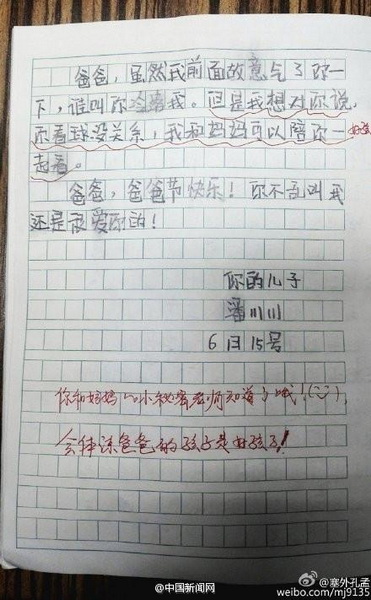 爸爸，虽然我前面故意气了你一
下，谁叫你冷落我。但是我想对你说，
你看球没关系，我和妈妈可以陪你一
起看。
爸爸，爸爸节快乐！你不乱叫我
还是很爱你的！
你的儿子
潘川川
6月15号
你和妈妈的小秘密老师知道了哦！
会体谅爸爸的孩子是好孩子！
@中国新闻网
@塞外孔孟
weibo.com/mj9135